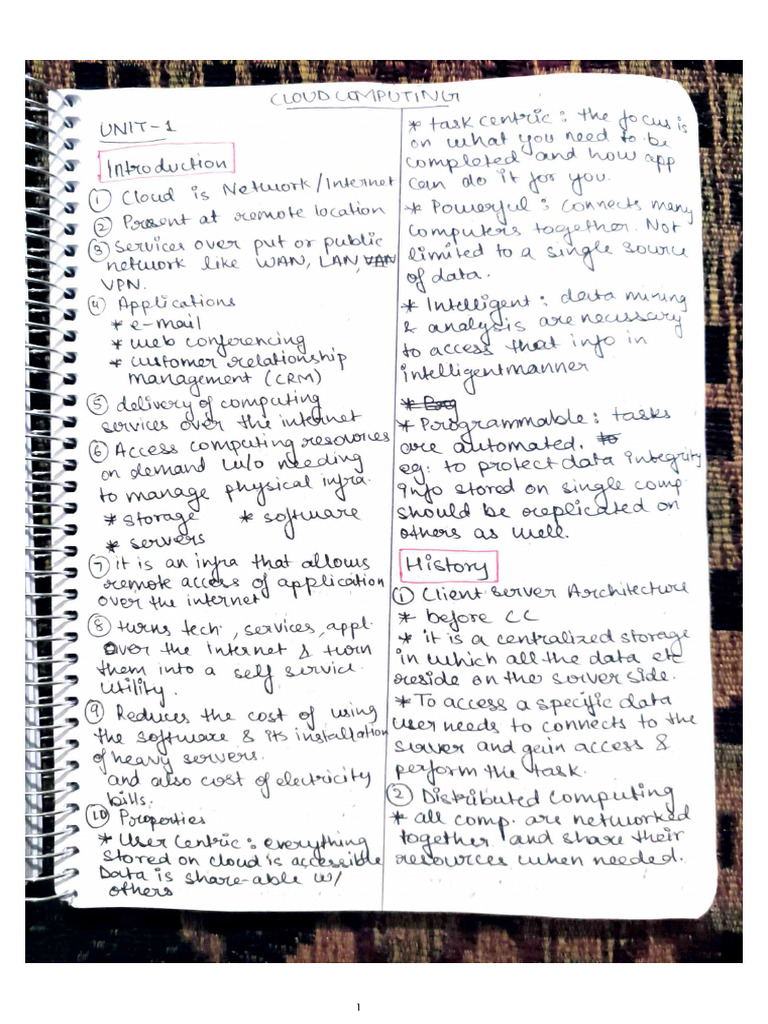 CLOUD COMPUTING
UNIT-1
Introduction
① Cloud is Network/Internet
② Present at remote location
③ Services over put or public
network like WAN, LAN, VAN
VPN.
④ Applications
* e-mail
* web conferencing
* customer relationship
management (CRM)
⑤ delivery of computing
services over the internet
⑥ Access computing resources
on demand w/o needing
to manage physical infra.
* storage * software
* servers
⑦ it is an infra that allows
remote access of application
over the internet
⑧ turns tech, services, appl.
over the internet & turn
them into a self service
utility.
⑨ Reduces the cost of using
the software & its installation
of heavy servers.
and also cost of electricity
bills.
⑩ Properties
* User Centric: everything
stored on cloud is accessible
Data is share-able w/
others
* task centric: the focus is
on what you need to be
completed and how app
can do it for you.
* Powerful: connects many
computers together. Not
limited to a single source
of data.
* Intelligent: data mining
& analysis are necessary
to access that info in
intelligent manner
* Prog
* Programmable: tasks
are automated. to
eg: to protect data integrity
info stored on single comp.
should be replicated on
others as well.
History
① Client Server Architecture
* before CC
* it is a centralized storage
in which all the data etc
reside on the server side.
* To access a specific data
user needs to connects to the
server and gain access &
perform the task.
② Distributed Computing
* all comp. are networked
together and share their
resources when needed.
1